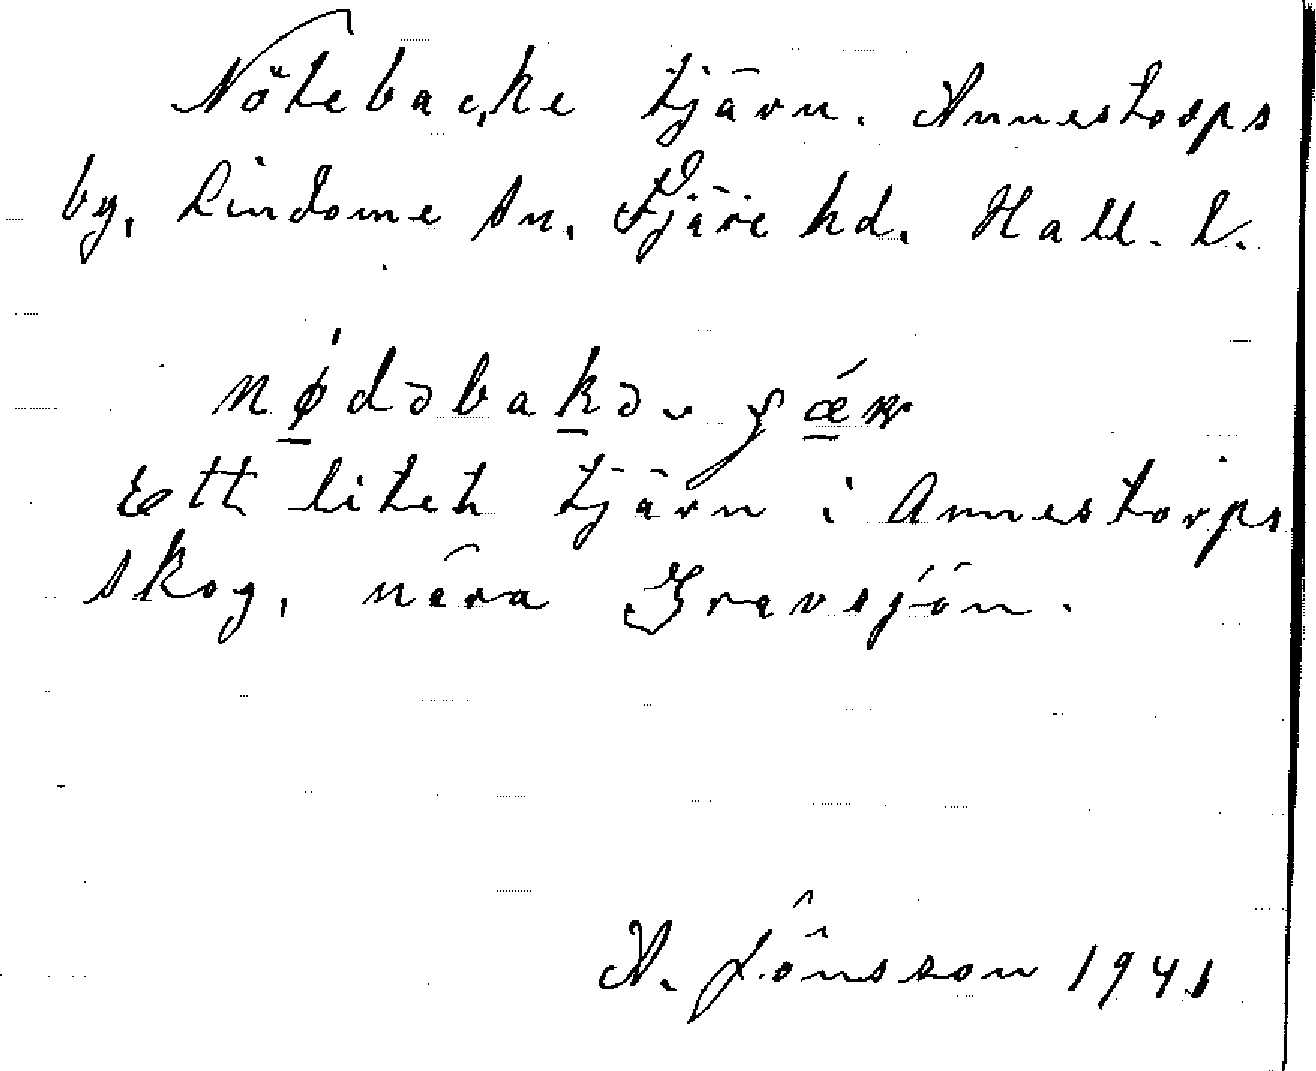 Nötebacke tjärn. Annestorps
by, Lindome sn. Fjäre hd. Hall. l.
nø̲dəbak̲ə
Ett litet tjärn i Annestorps
skog, nära Gravsjön.
A. Jönsson 1941